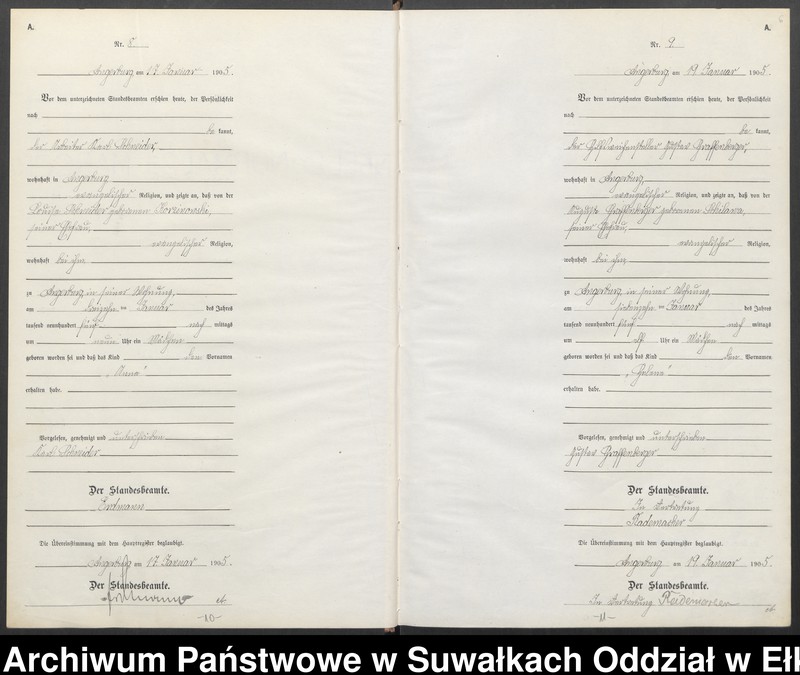 A.
Nr. 8
Angerburg am 17. Januar 1905.
Vor dem unterzeichneten Standesbeamten erschien heute, der Persönlichkeit
nach
be kannt,
der Arbeiter Karl Schneider,
wohnhaft in Angerburg,
evangelischer Religion, und zeigte an, daß von der
Schneider geborenen
seiner Ehefrau,
evangelischer Religion,
wohnhaft bei ihm
zu Angerburg in seiner Wohnung,
am Januar des Jahres
tausend neunhundert fünf nach mittags
um neun Uhr ein Mädchen
geboren worden sei und daß das Kind den Vornamen
„Anna“
erhalten habe.
Vorgelesen, genehmigt und unterschrieben
Karl Schneider
Der Standesbeamte.
Erdmann
Die Übereinstimmung mit dem Hauptregister beglaubigt.
Angerburg am 17. Januar 1905.
Der Standesbeamte.
Erdmann
-10-
A.
Nr. 9.
Angerburg am 19. Januar 1905.
Vor dem unterzeichneten Standesbeamten erschien heute, der Persönlichkeit
nach
be kannt,
der Hilfsweichensteller Gustav Graffenberger,
wohnhaft in Angerburg,
evangelischer Religion, und zeigte an, daß von der
Auguste Graffenberger geborenen
seiner Ehefrau,
evangelischer Religion,
wohnhaft bei ihm
zu Angerburg in seiner Wohnung,
am siebenzehn ten Januar des Jahres
tausend neunhundert fünf nach mittags
um elf Uhr ein Mädchen
geboren worden sei und daß das Kind den Vornamen
„Helene“
erhalten habe.
Vorgelesen, genehmigt und unterschrieben
Gustav Graffenberger
Der Standesbeamte.
In Vertretung
Rademacher
Die Übereinstimmung mit dem Hauptregister beglaubigt.
Angerburg am 19. Januar 1905.
Der Standesbeamte.
In Vertretung Rademacher
-11-
Archiwum Państwowe w Suwałkach Oddział w Ełk